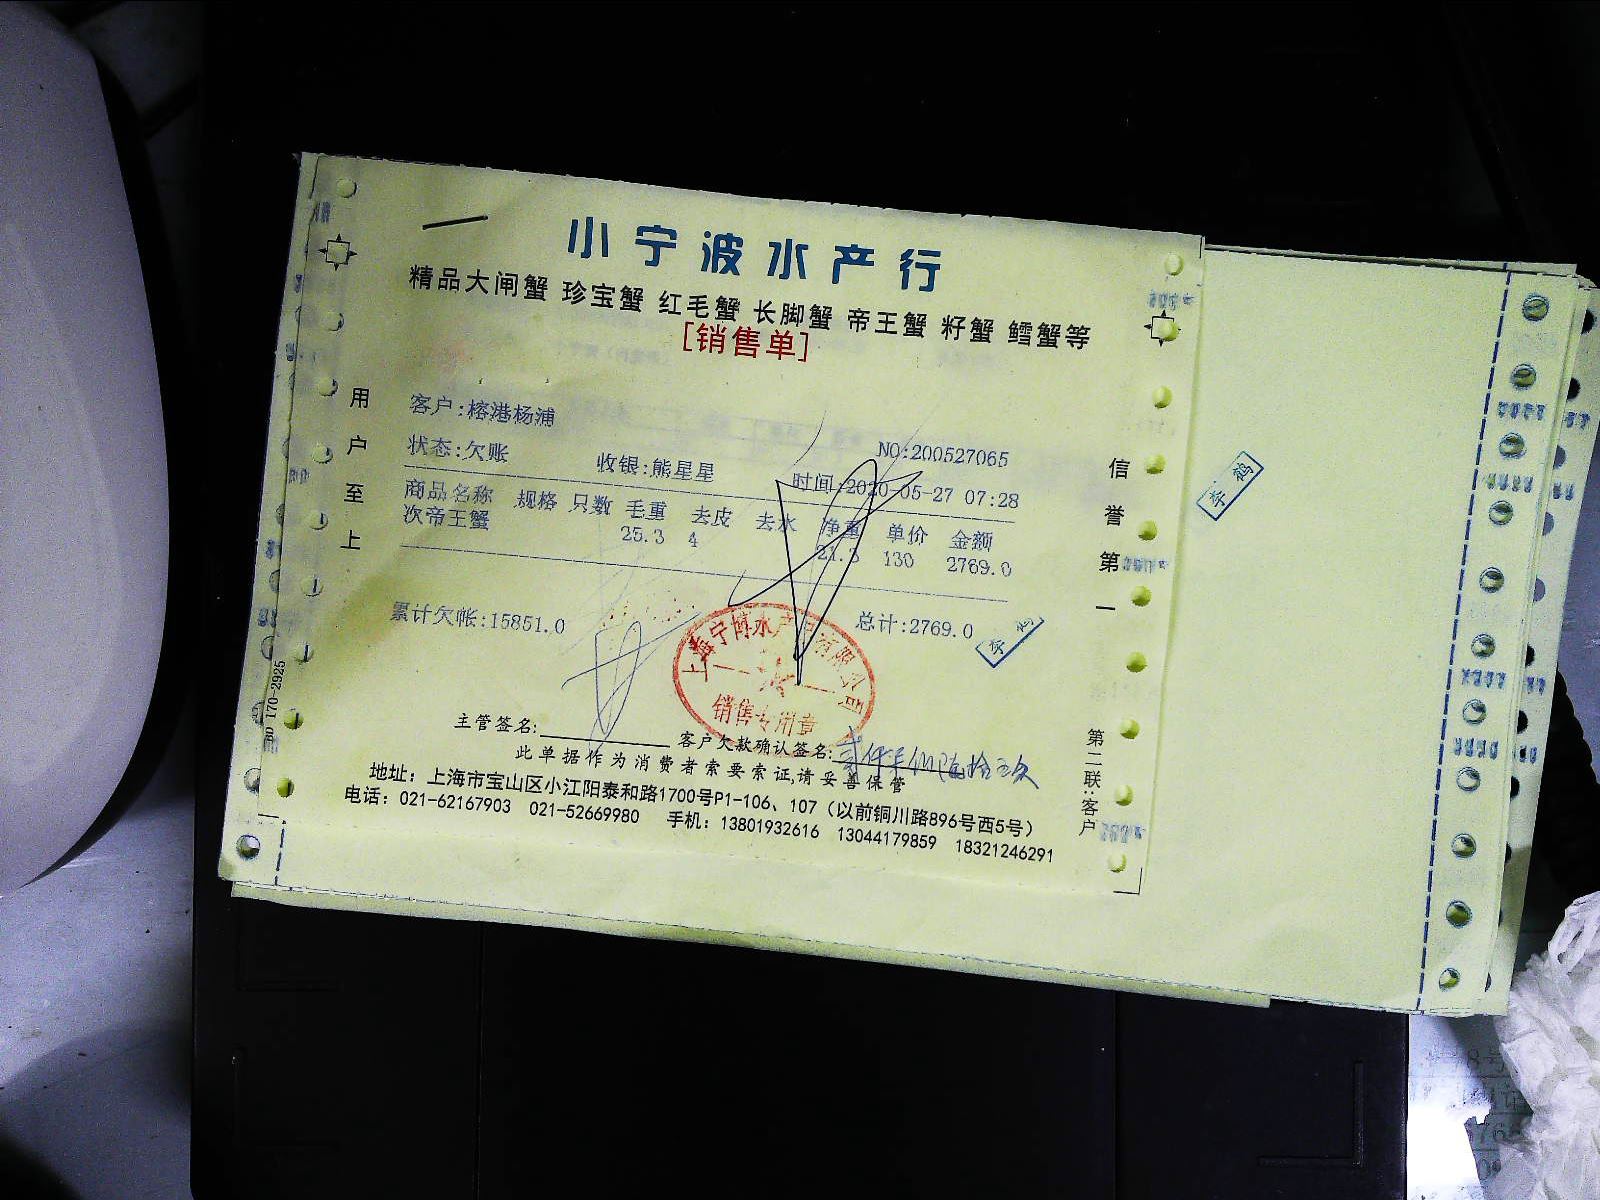 小宁波水产行
精品大闸蟹 珍宝蟹 红毛蟹 长脚蟹 帝王蟹 籽蟹 鳕蟹等
[销售单]
客户:榕港杨浦
NO:200527065
状态:欠账 收银:熊星星 时间:2020-05-27 07:28
商品名称 规格 只数 毛重 去皮 去水 净重 单价 金额
次帝王蟹 25.3 4 21.3 130 2769.0
累计欠帐:15851.0 总计:2769.0
李鹤
上海宁博水产品有限公司
销售专用章
主管签名: 客户欠款确认签名:
此单据作为消费者索要索证,请妥善保管
地址: 上海市宝山区小江阳泰和路1700号P1-106、107（以前铜川路896号西5号）
电话: 021-62167903 021-52669980 手机: 13801932616 13044179859 18321246291
用户至上
信誉第一
第二联:客户
170-2925
李鹤